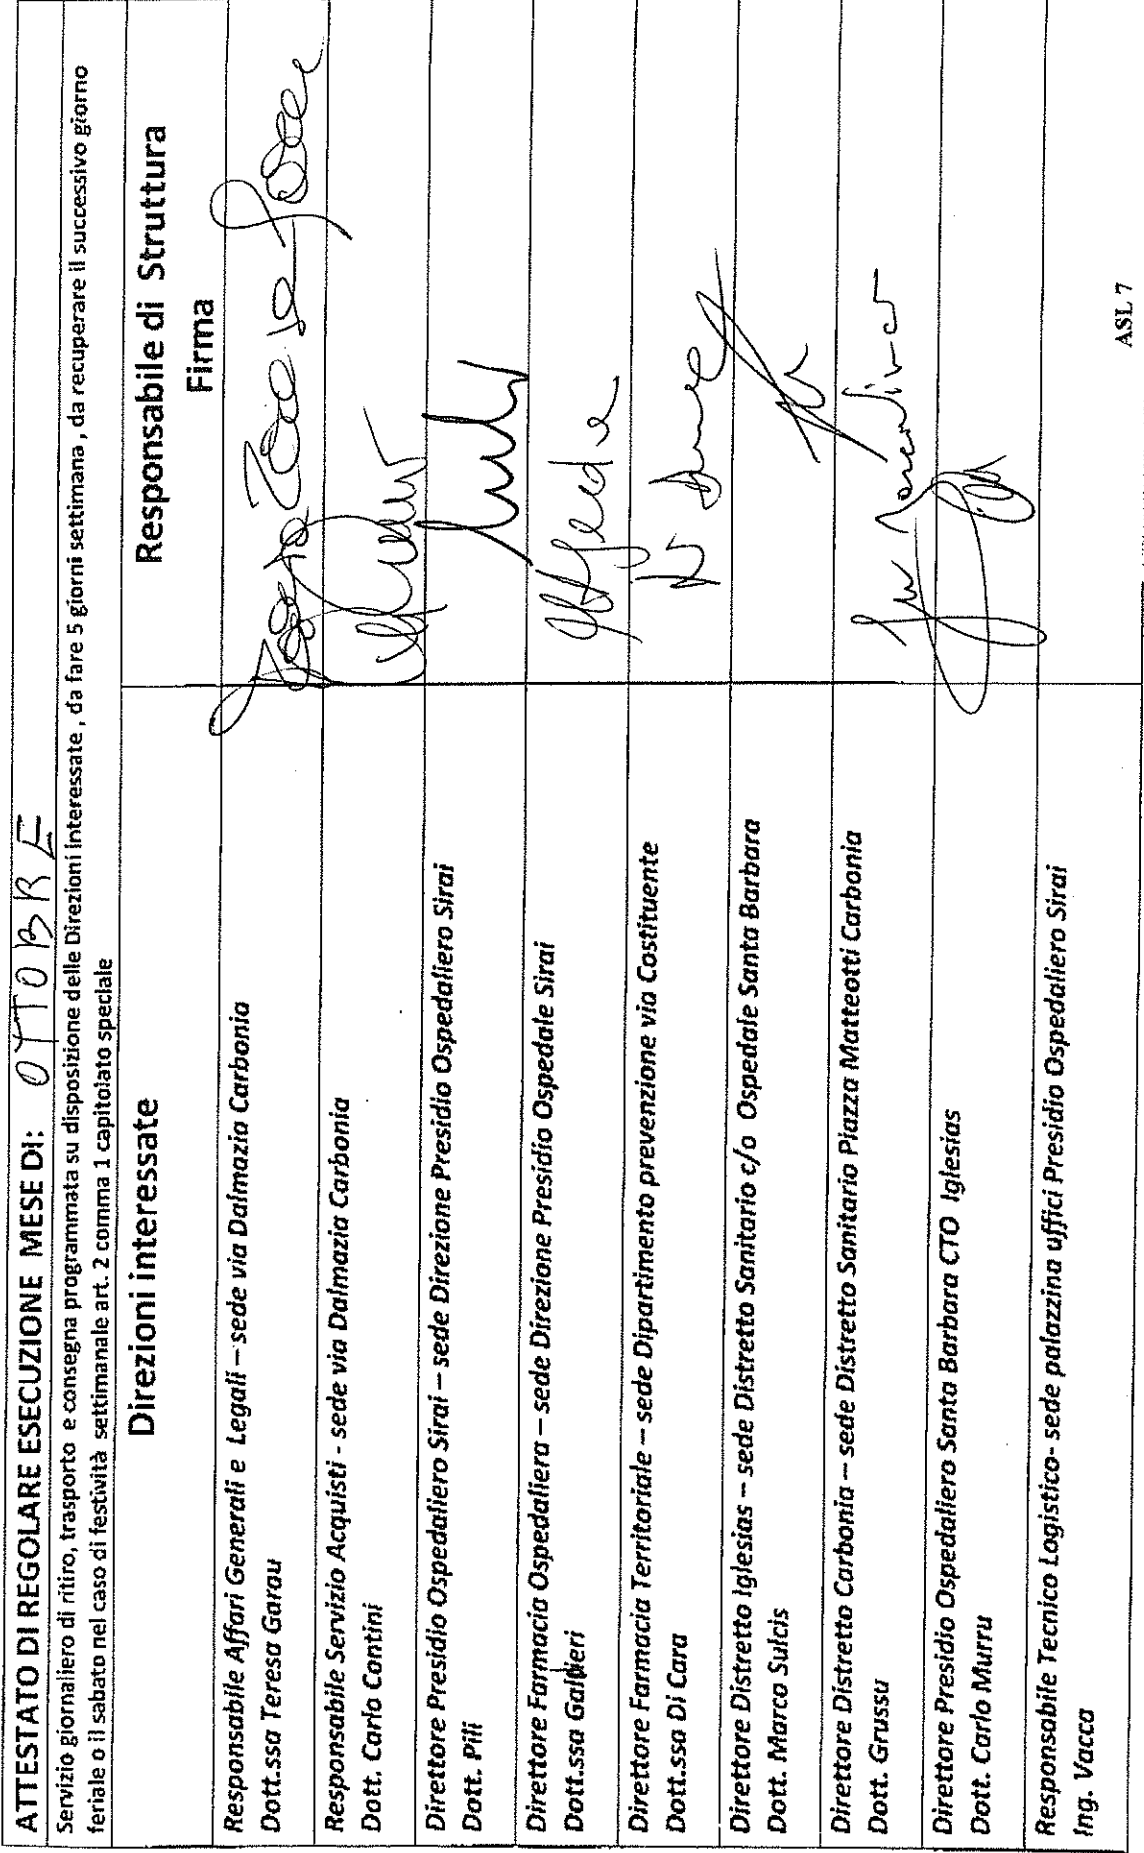 ATTESTATO DI REGOLARE ESECUZIONE MESE DI: OTTOBRE
Servizio giornaliero di ritiro, trasporto e consegna programmata su disposizione delle Direzioni interessate , da fare 5 giorni settimana , da recuperare il successivo giorno
feriale o il sabato nel caso di festività settimanale art. 2 comma 1 capitolato speciale
Direzioni interessate
Responsabile di Struttura
Firma
Responsabile Affari Generali e Legali – sede via Dalmazia Carbonia
Dott.ssa Teresa Garau
Responsabile Servizio Acquisti - sede via Dalmazia Carbonia
Dott. Carlo Contini
Direttore Presidio Ospedaliero Sirai – sede Direzione Presidio Ospedaliero Sirai
Dott. Pili
Direttore Farmacia Ospedaliera – sede Direzione Presidio Ospedale Sirai
Dott.ssa
Direttore Farmacia Territoriale – sede Dipartimento prevenzione via Costituente
Dott.ssa Di Cara
Direttore Distretto Iglesias – sede Distretto Sanitario c/o Ospedale Santa Barbara
Dott. Marco Sulcis
Direttore Distretto Carbonia – sede Distretto Sanitario Piazza Matteotti Carbonia
Dott. Grussu
Direttore Presidio Ospedaliero Santa Barbara CTO Iglesias
Dott. Carlo Murru
Responsabile Tecnico Logistico- sede palazzina uffici Presidio Ospedaliero Sirai
Ing. Vacca
ASL 7